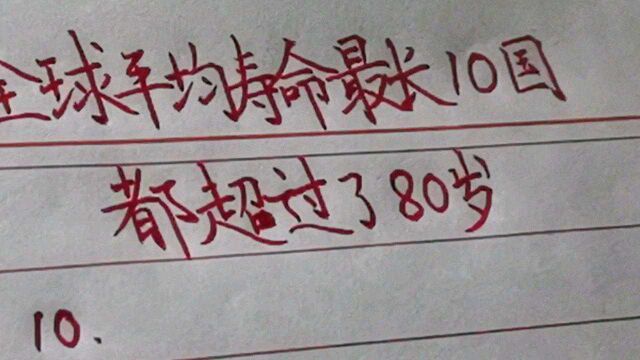 全球平均寿命最长10国
都超过了80岁
10.